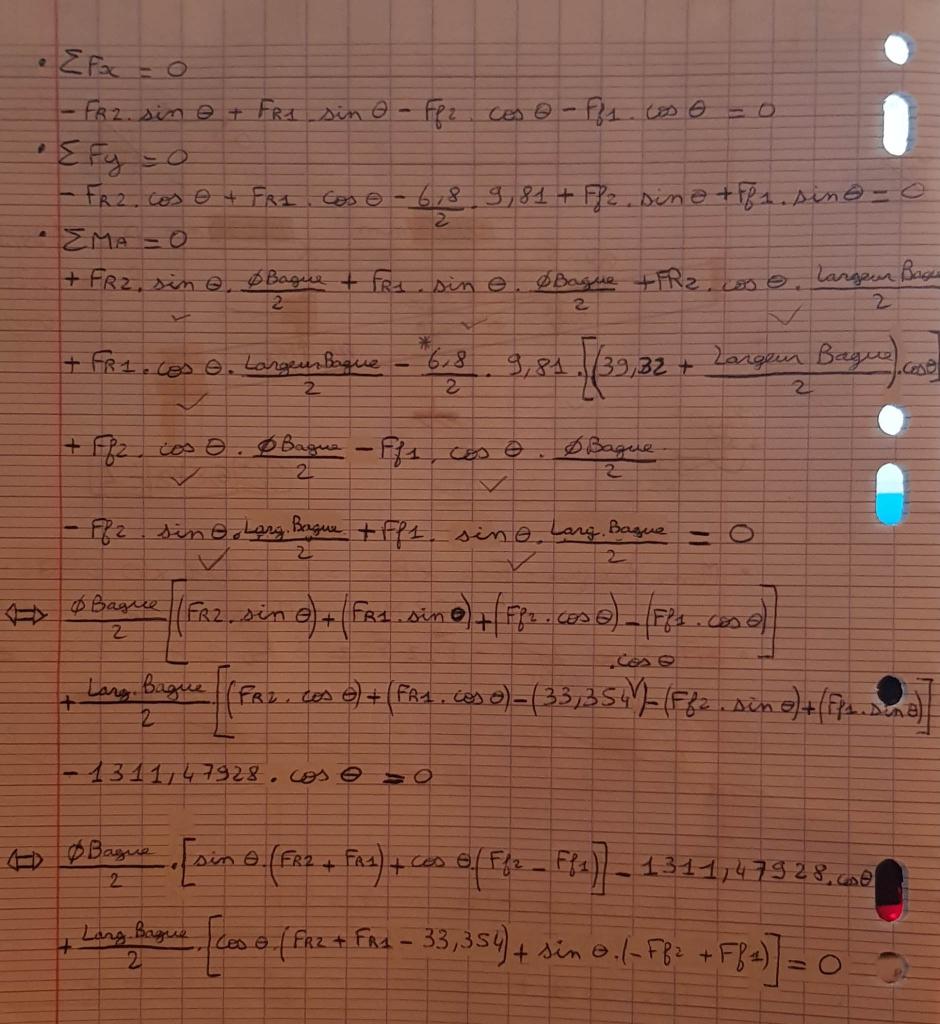 • ΣFx = 0
- FR2 . sin θ + FR1 . sin θ - Ff2 . cos θ - Ff1 . cos θ = 0
• ΣFy = 0
- FR2 . cos θ + FR1 . cos θ - 6,8/2 . 9,81 + Ff2 . sin θ + Ff1 . sin θ = 0
• ΣMA = 0
+ FR2 . sin θ . ØBague/2 + FR1 . sin θ . ØBague/2 + FR2 . cos θ . Largeur Bague/2
✓ ✓ ✓
+ FR1 . cos θ . Largeur Bague/2 - *6,8/2 . 9,81 . [(39,32 + Largeur Bague/2) . cosθ]
✓
+ Ff2 . cos θ . ØBague/2 - Ff1 . cos θ . ØBague/2
✓ ✓
- Ff2 . sin θ . Larg. Bague/2 + Ff1 . sin θ . Larg. Bague/2 = 0
✓ ✓
⇔ ØBague/2 [(FR2 . sin θ) + (FR1 . sin θ) + (Ff2 . cos θ) - (Ff1 . cos θ)]
+ Larg. Bague/2 . [(FR2 . cos θ) + (FR1 . cos θ) - (33,354 . cos θ) - (Ff2 . sin θ) + (Ff1 . sin θ)]
- 1311,47928 . cos θ = 0
⇔ ØBague/2 . [sin θ . (FR2 + FR1) + cos θ . (Ff2 - Ff1)] - 1311,47928 . cosθ
+ Larg. Bague/2 . [cos θ . (FR2 + FR1 - 33,354) + sin θ . (-Ff2 + Ff1)] = 0